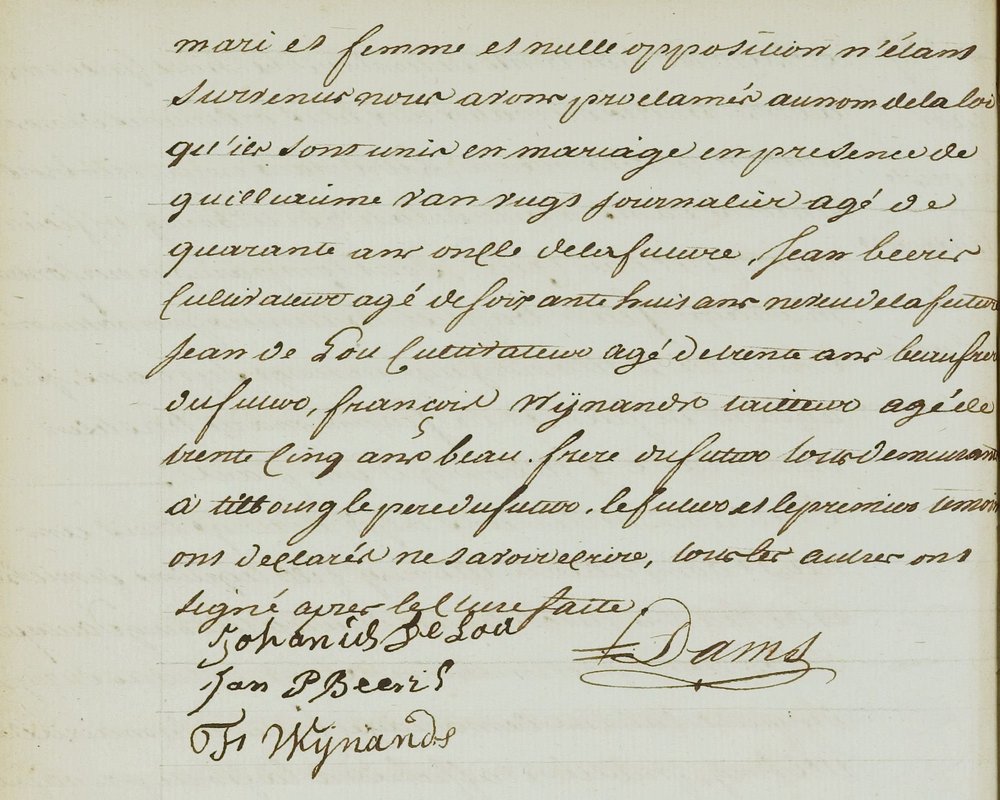 mari et femme et nulle opposition n'étant
survenus nous avons proclamés au nom de la loi
qu'ils sont unis en mariage en presence de
guilliaume van rugs journalier agé de
quarante ans oncle de la future, Jean beeris
Cultivateur agé de soixante huit ans neveu de la future
Jean de Lou Cultivateur agé de trente ans beaufrere
du futur, françois Wijnands tailleur agé de
trente cinq ans beau.frere du futur tous demeurant
à tilbourg le pere du futur, le futur et le premier temoin
ont declarés ne savoir ecrire, tous les autres ont
signé apres lecture faite.
Johanis De Lou
Dams
Jan P Beeris
F Wijnands